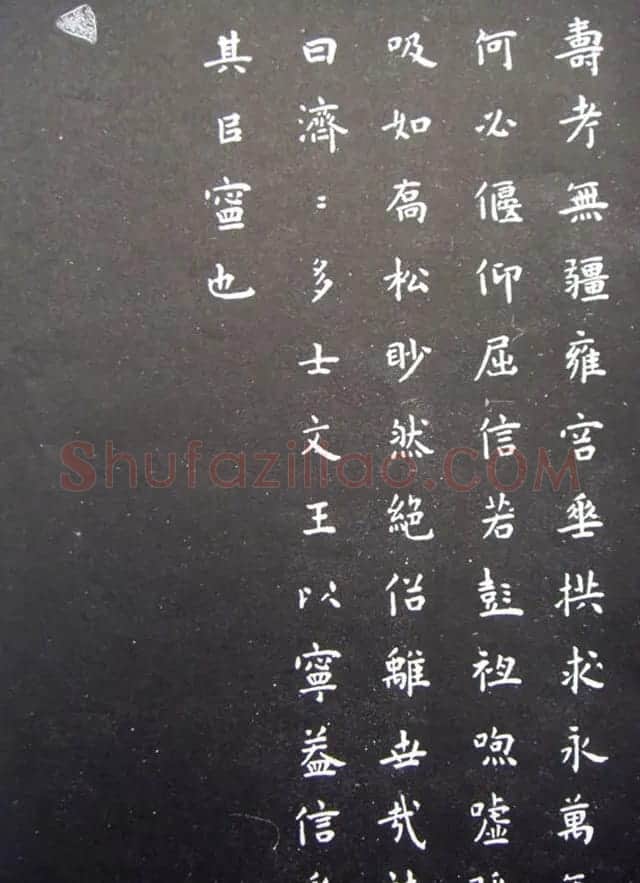 壽考無疆雍宮垂拱求永萬
何必偃仰屈信若彭祖喣噓
吸如喬松眇然絕俗離世哉
曰濟〻多士文王以寧蓋信
其㠯寧也
Shufaziliao.COM